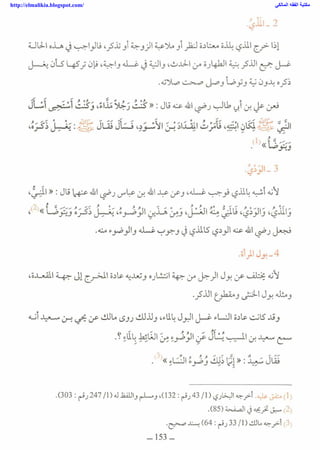 http://elmalikia.blogspot.com/
مكتبة الفقه المالكي
2 ـ المَذْيُ.
إذا خرج المذي بلذة معتادة لنظر أو ملاعبة الزوجة أو تذكر، فالواجب في هذه الحالة
غسل جميع الذكر بنية الطهارة من الحدث، والنية في غسله واجبة، فإن تركها كأن يغسل
ذكره بدون نية وتوضأ وصلى صحت صلاته.
فعن علي بن أبي طالب رضي الله عنه قال: «كُنْتُ رَجُلاً مَذَّاءً، وَكُنْتُ أَسْتَحْيِي أَنْ أَسْأَلَ
النَّبِيَّ ﷺ لِمَكَانِ ابْنَتِهِ، فَأَمَرْتُ الْمِقْدَادَ بْنَ الأَسْوَدِ، فَسَأَلَهُ فَقَالَ ﷺ: يَغْسِلُ ذَكَرَهُ،
وَيَتَوَضَّأُ»(1).
3 ـ الوَدْيُ.
لأنه أشبه المذي في خروجه، فوجب غسله، وعن عبد الله بن عباس رضي الله عنهما قال: «المَنِيُّ،
وَالمَذْيُ، وَالوَدْيُ، فَالمَنِيُّ مِنْهُ الغُسْلُ، وَمِنْ هَذَيْنِ الوُضُوءُ، يَغْسِلُ ذَكَرَهُ وَيَتَوَضَّأُ»(2)،
فجعل رضي الله عنه الودي كالمذي في وجوب غسله والوضوء منه.
4 ـ بول المرأة.
لأنه يختلف عن بول الرجل من جهة انتشاره وتعديه عادة المخرج إلى جهة المقعدة،
ومثله بول الخنثى ومقطوع الذكر.
وقد كانت عادة النساء غسل البول بالماء، ولذلك روى مالك عن يحي بن سعيد أنه
سمع سعيد بن المسيب يُسْأَلُ عَنِ الوُضُوءِ مِنَ الغَائِطِ بِالمَاءِ ؟.
فَقَالَ سَعِيدٌ: «إِنَّمَا ذَلِكَ وُضُوءُ النِّسَاءِ»(3).
(1) متفق عليه. أخرجه البخاري (1/ 43 رقم : 132)، ومسلم واللفظ له (1/ 247 رقم : 303).
(2) سبق تخريجه في الصفحة (85).
(3) أخرجه مالك (1/ 33 رقم : 64) بسند صحيح.
ـ 153 ـ